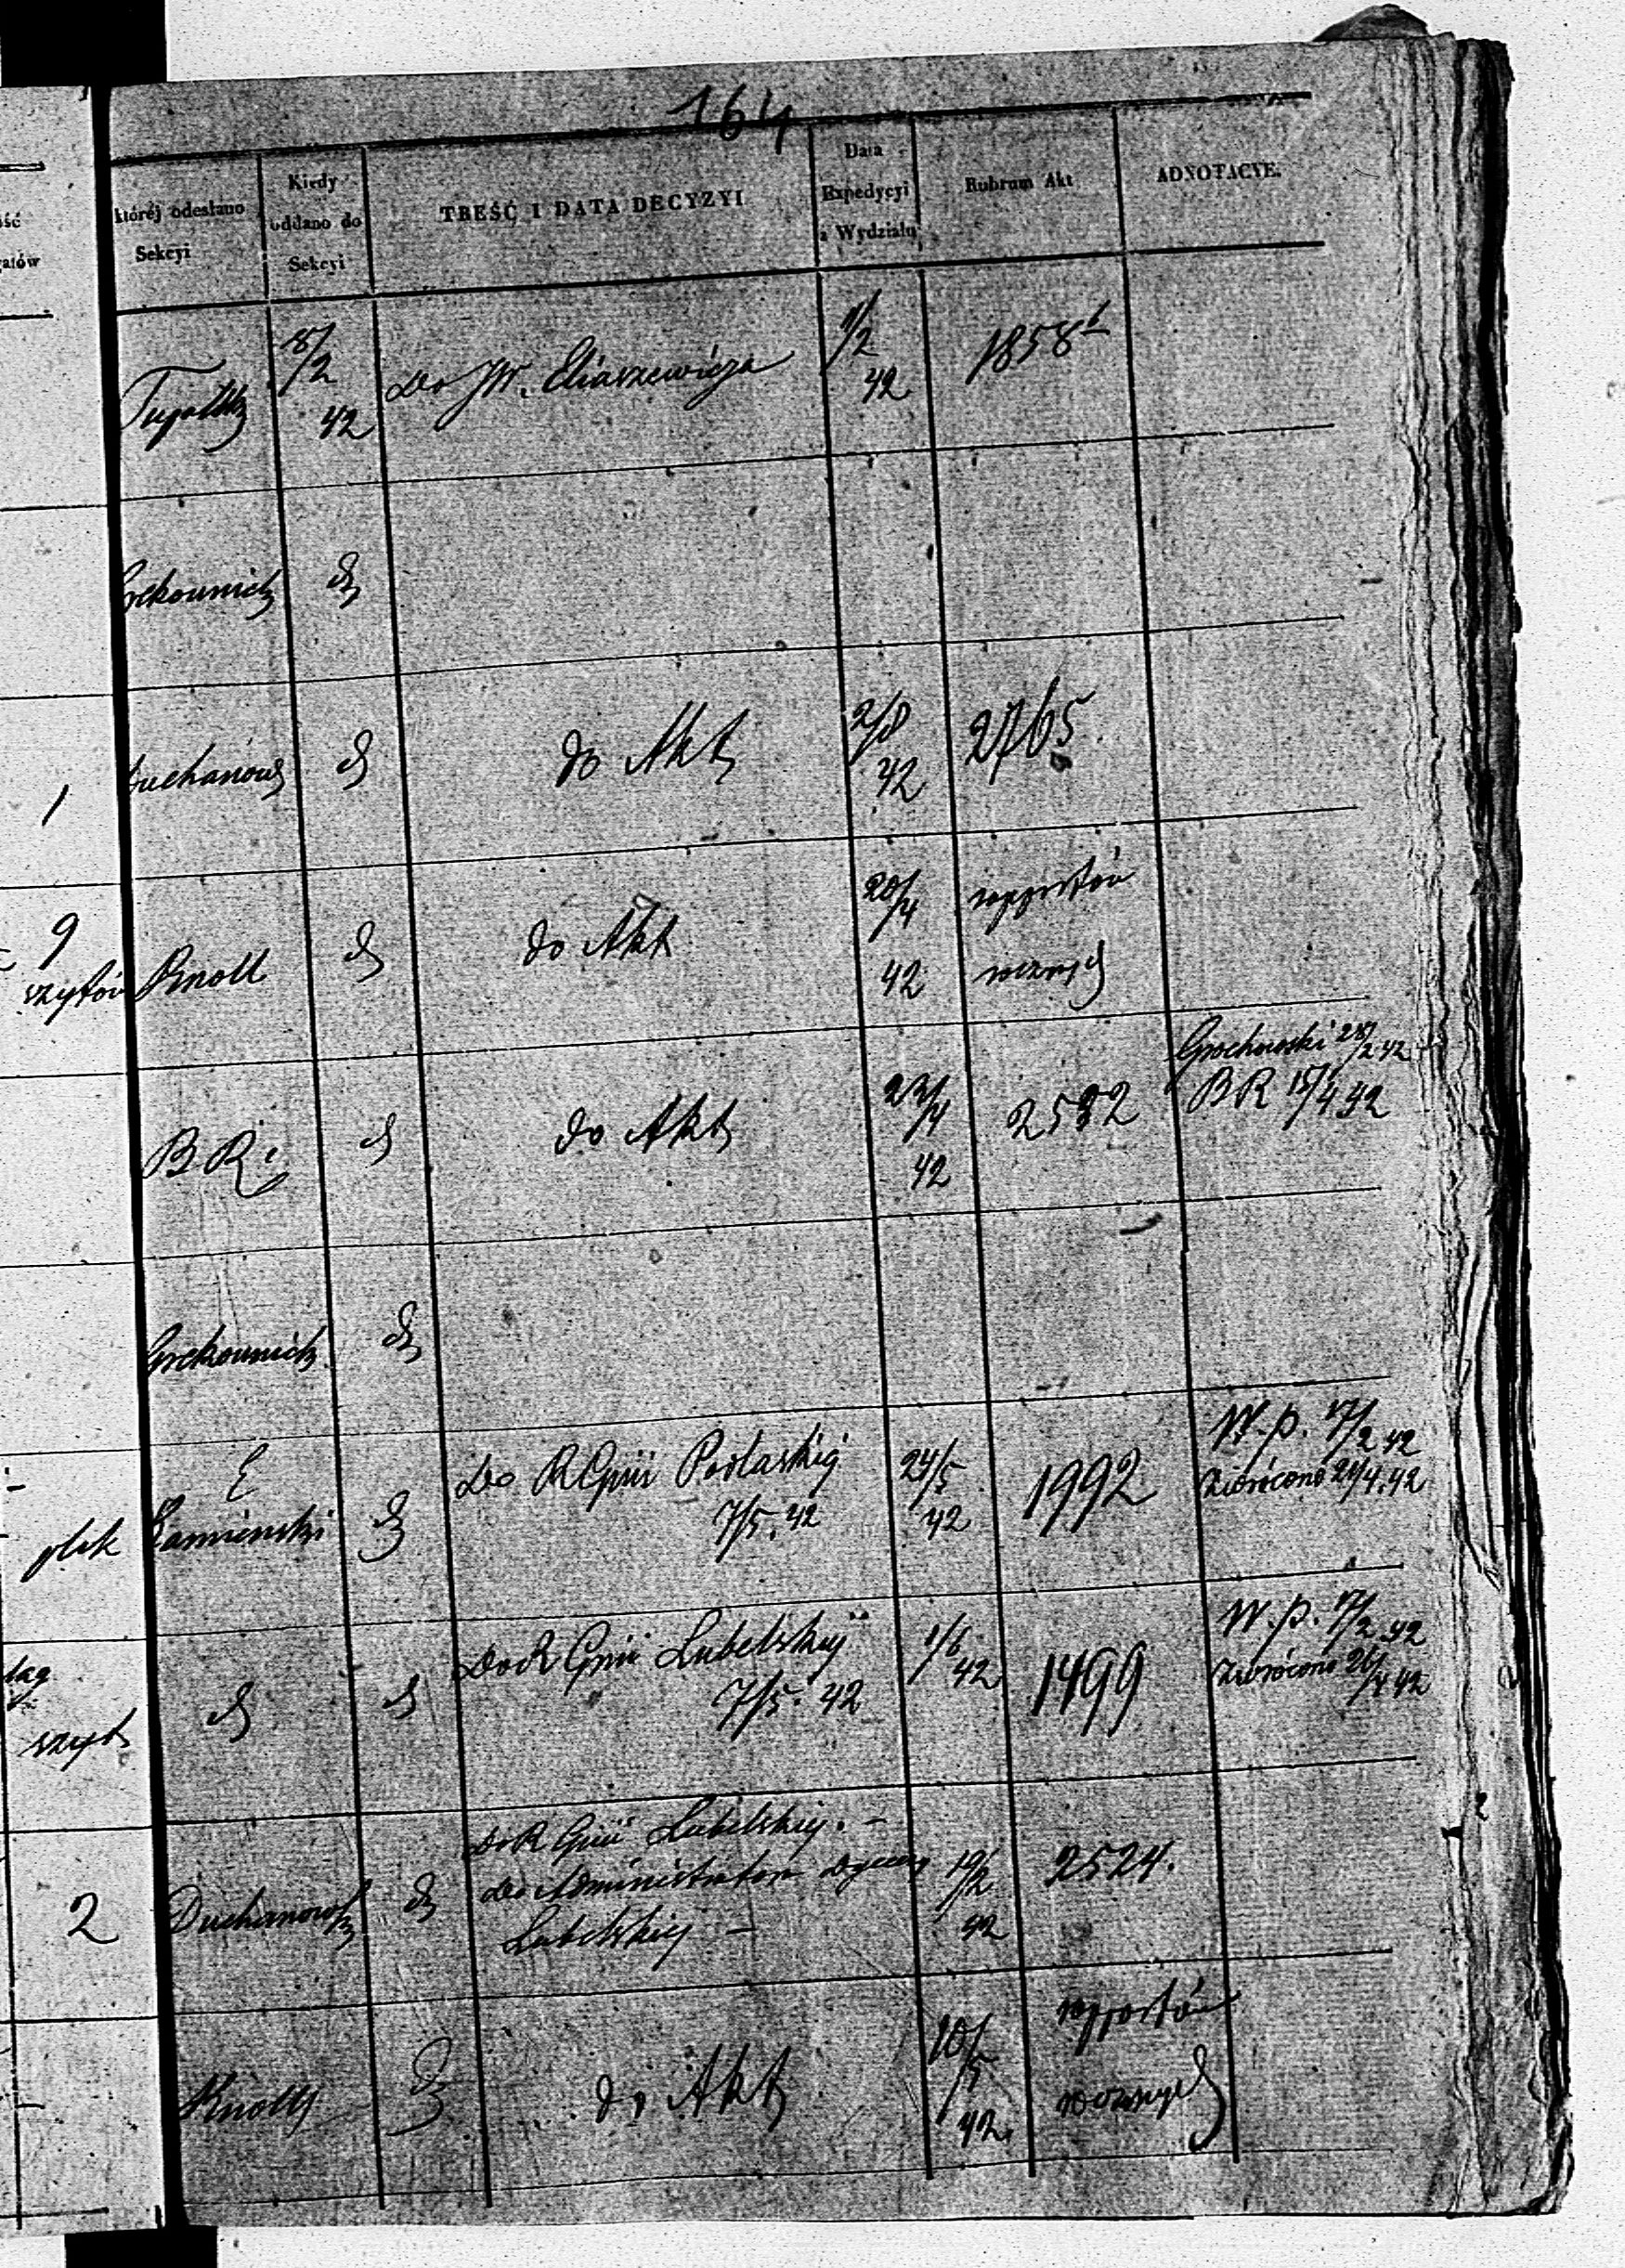 164
ść
której odesłano
Sekcyi
Kiedy
oddano do
Sekcyi
TREŚĆ I DATA DECYZYI
Data
Expedycyi
z Wydziału
Rubrum Akt
ADNOTACYE.
8/2
42
do JW. Eliaszewicza
9/2
42
1858
do Akt
2/8
42
2765
1
9
szytów
Knoll
do Akt
20/4
42
rapportów
rocznych
B R.
do Akt
23/4
42
2582
Grochowski 28/2 42
BR 15/4 42
plik
Kamienski
do R Gnii Podlaskiej
7/5. 42
24/5
42
1992
W. p. 17/2 42
Zwrócono 21/4. 42
szyt
do R Gnii Lubelskiej
7/5. 42
1/6
42
1499
W. p. 17/2 42
Zwrócono 26/4 42
2
Duchanows
do R Gnii Lubelskiej. –
do Administratora Dyecezyi
Lubelskiej –
19/2
42
2524.
Knoll
do Akt
10/5
42
rapportów
rocznych